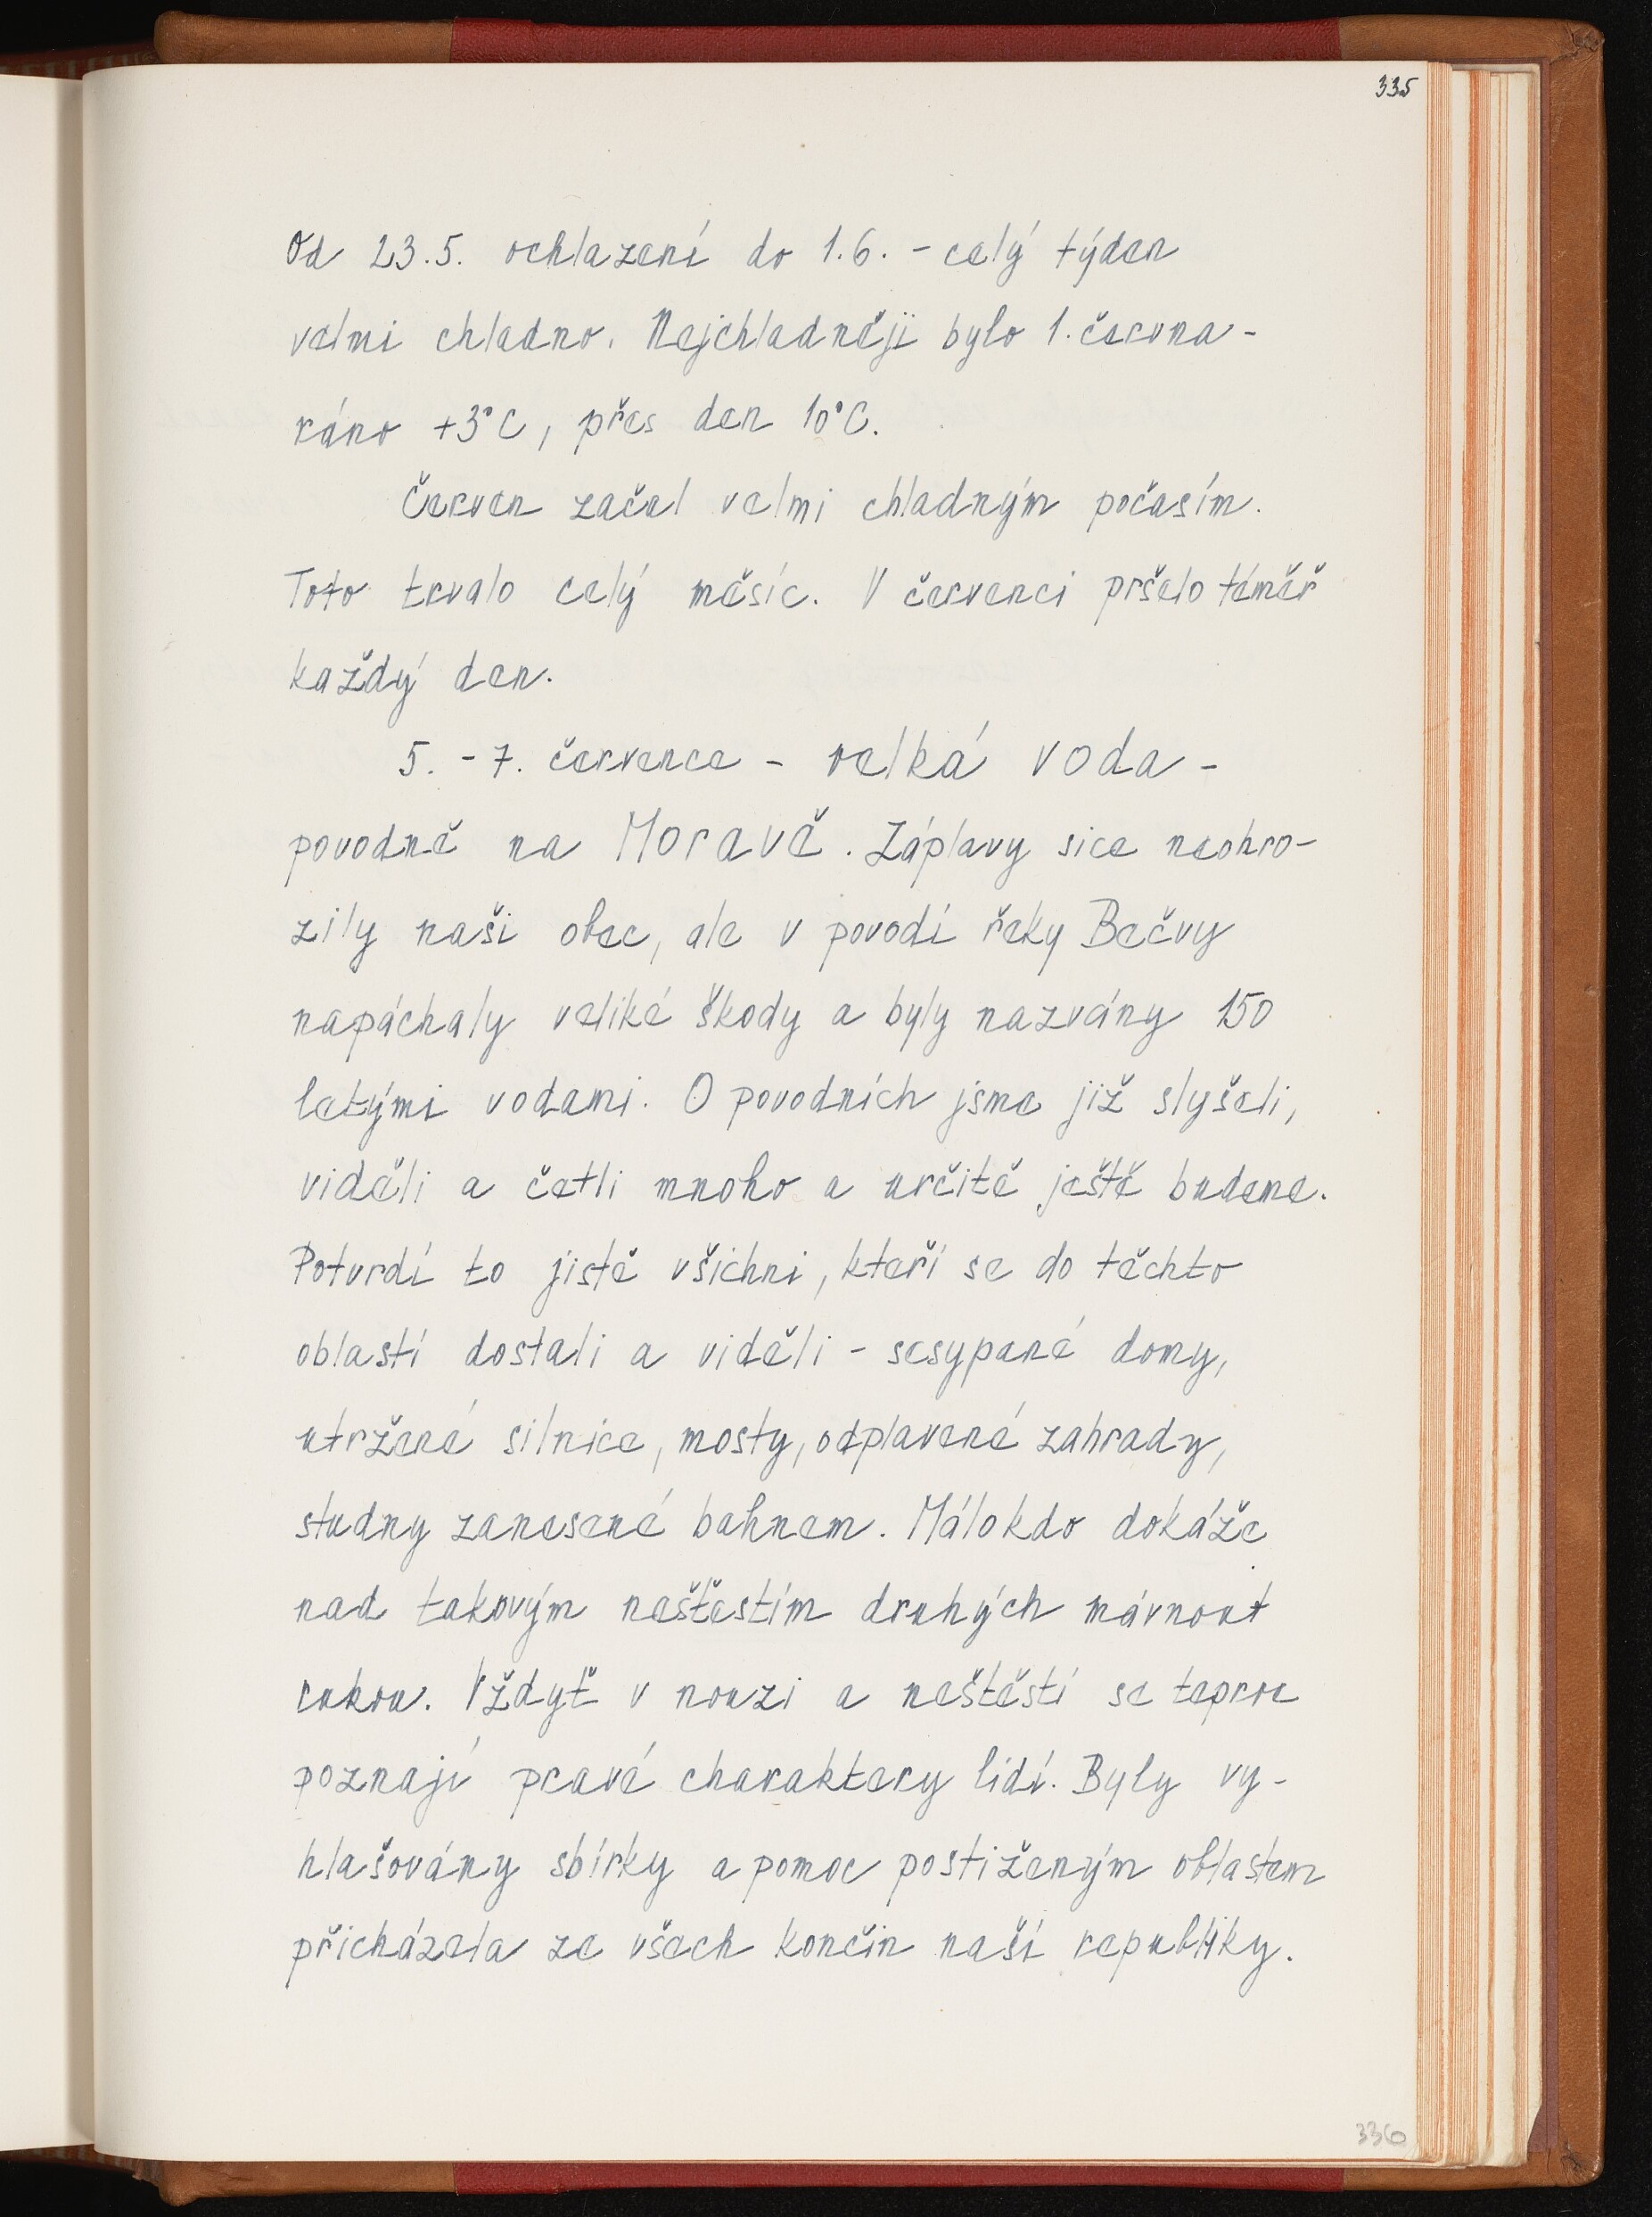 335
Od 23.5. ochlazení do 1.6. - celý týden
velmi chladno. Nejchladněji bylo 1. června -
ráno +3°C, přes den 10°C.
Červen začal velmi chladným počasím.
Toto trvalo celý měsíc. V červenci pršelo téměř
každý den.
5. - 7. července - velká voda -
povodně na Moravě. Záplavy sice neohro-
zily naši obec, ale v povodí řeky Bečvy
napáchaly veliké škody a byly nazvány 150
letými vodami. O povodních jsme již slyšeli,
viděli a četli mnoho a určitě ještě budeme.
Potvrdí to jistě všichni, kteří se do těchto
oblastí dostali a viděli - sesypané domy,
utržené silnice, mosty, odplavené zahrady,
studny zanesené bahnem. Málokdo dokáže
nad takovým neštěstím druhých mávnout
rukou. Vždyť v nouzi a neštěstí se teprve
poznají pravé charaktery lidí. Byly vy-
hlašovány sbírky a pomoc postiženým oblastem
přicházela ze všech končin naší republiky.
336